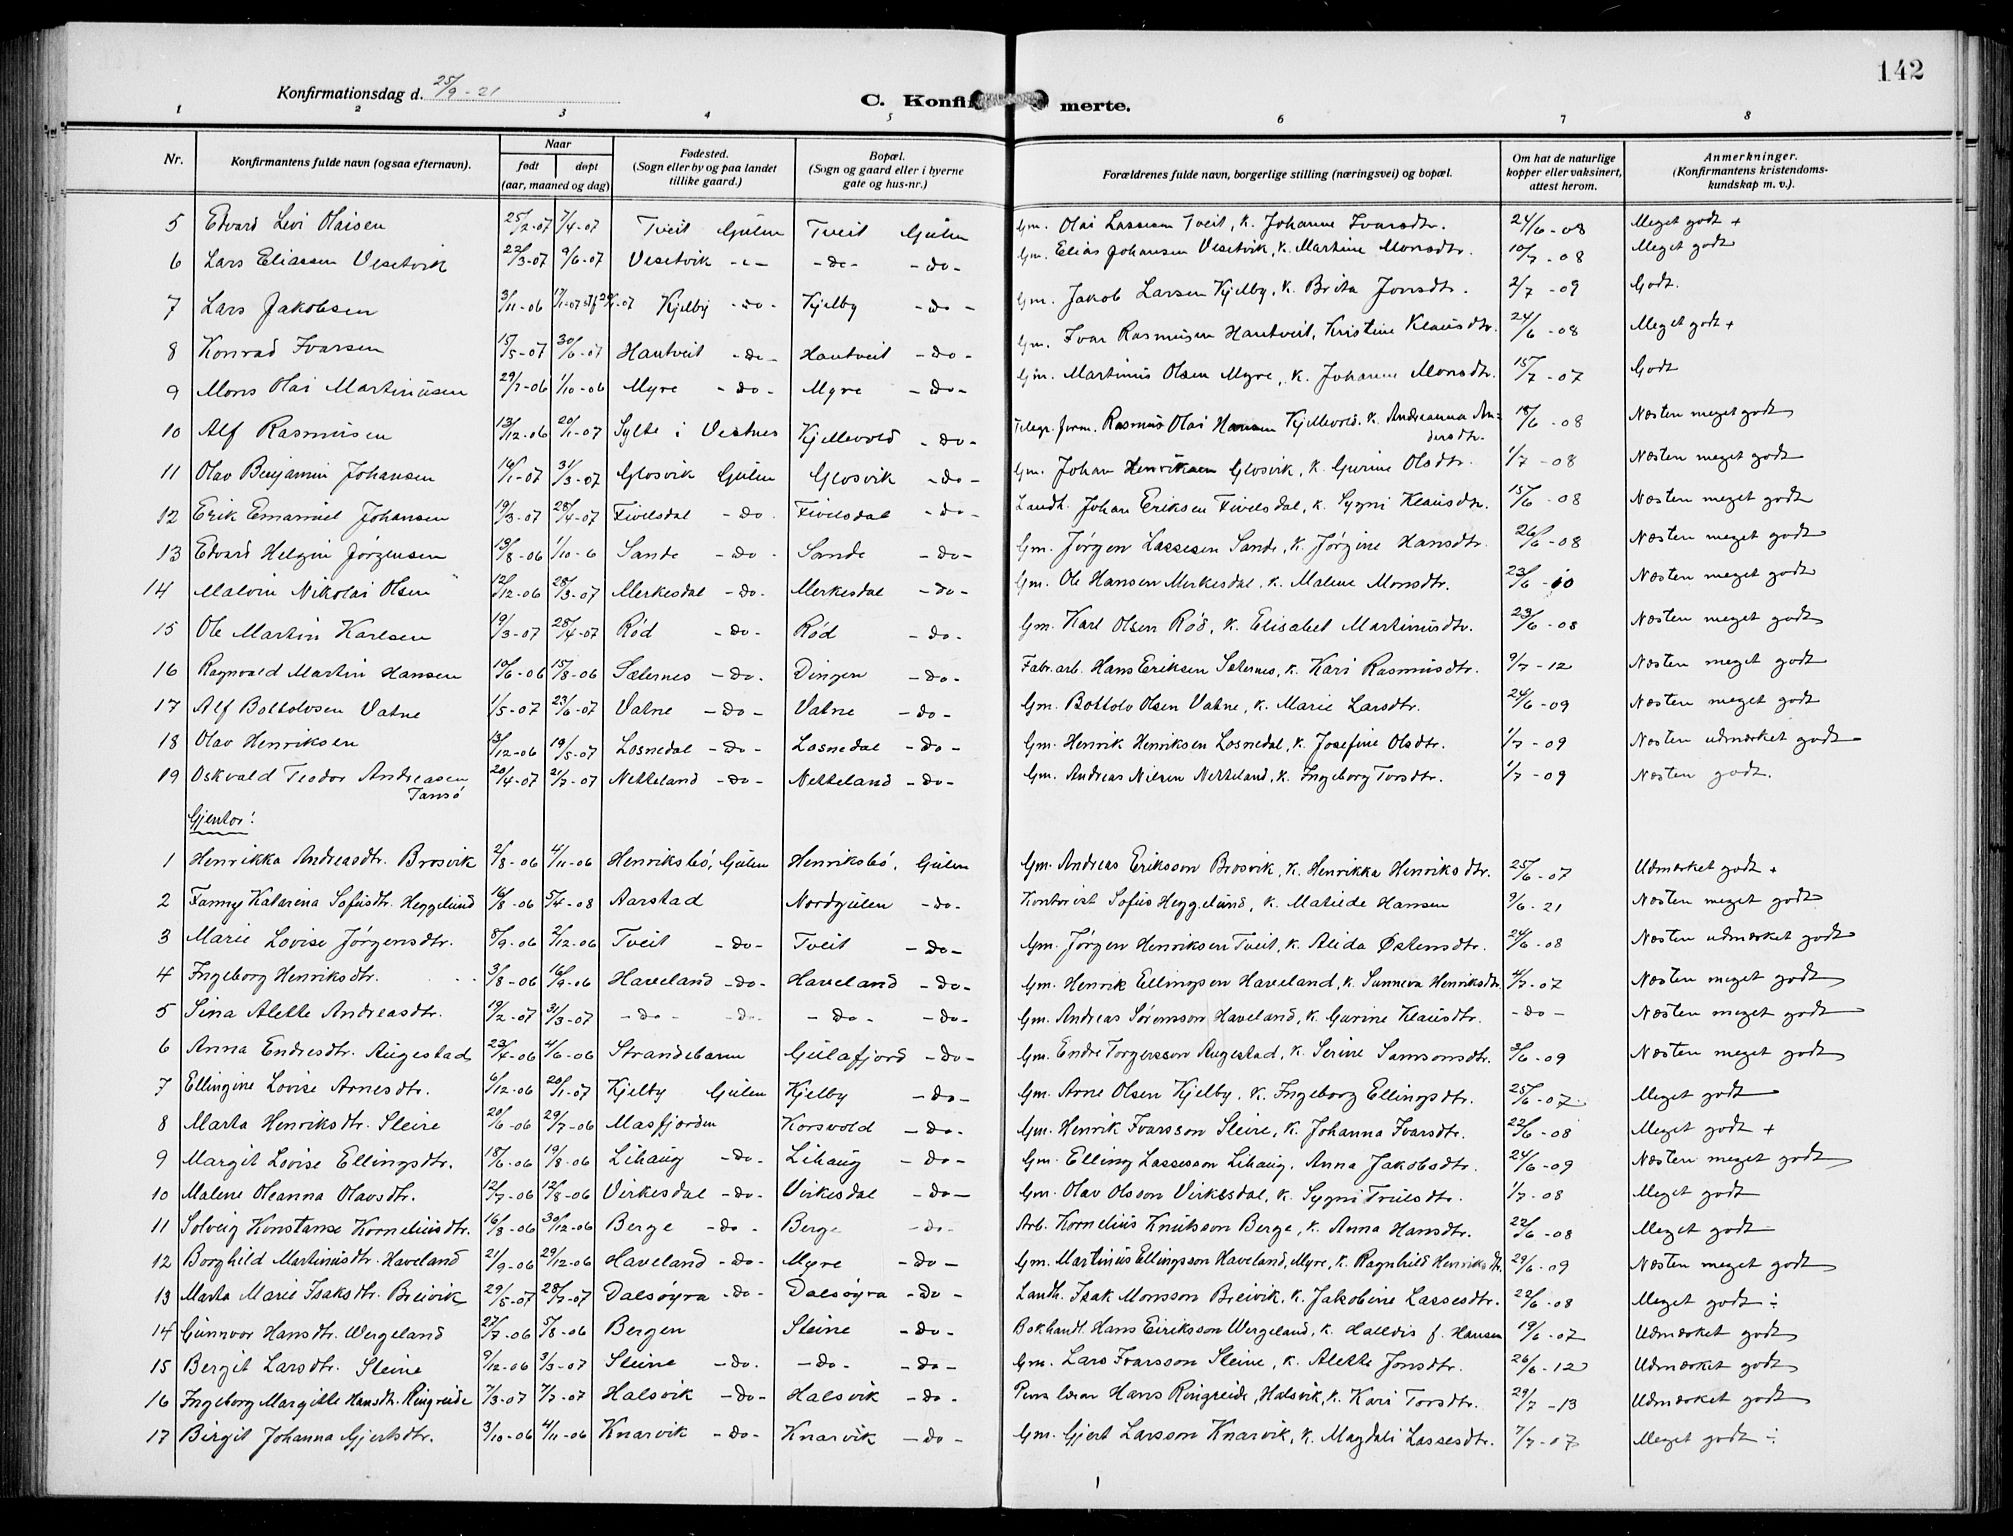 142
Konfirmationsdag d. 25/9-21
C. Konfir merte.
1 2 3 4 5 6 7 8
Nr. Konfirmantens fulde navn (ogsaa efternavn). Naar født døpt (aar, maaned og dag) Fødested. (Sogn eller by og paa landet tillike gaard.) Bopæl. (Sogn og gaard eller i byerne gate og hus-nr.) Forældrenes fulde navn, borgerlige stilling (næringsvei) og bopæl. Om hat de naturlige kopper eller vaksinert, attest herom. Anmerkninger. (Konfirmantens kristendomskundskap m. v.).
5 Edvard Levi Olaisen 25/2-07 7/4-07 Tveit Gulen Tveit Gulen Gm. Olai Lassesen Tveit, K. Johanne Ivarsdtr. 24/6-08 Meget godt +
6 Lars Eliassen Vesetvik 22/3-07 9/6-07 Vesetvik -"- -do- -do- Gm. Elias Johansen Vesetvik, K. Martine Monsdtr. 10/7-08 Meget godt
7 Lars Jakobsen 3/11-06 Kjelby -do- Kjelby -do- Gm. Jakob Larsen Kjelby, K. Brita Jonsdtr. 2/7-09 Godt.
8 Konrad Ivarsen 15/5-07 30/6-07 Hantveit -do- Hantveit -do- Gm. Ivar Rasmusen Hantveit, Kristine Klausdtr. 24/6-08 Meget godt +
9 Mons Olai Martinusen 29/7-06 1/10-06 Myre -do- Myre -do- Gm. Martinus Olsen Myre, K. Johanne Monsdtr. 15/7-07 Godt
10 Alf Rasmusen 13/12-06 20/1-07 Sylte i Vestnes Kjellevold -do- Telegr. form. Rasmus Olai Hansen Kjellevold. K. Andreanna Andersdtr. 18/6-08 Næsten meget godt
11 Olav Benjamin Johansen 16/1-07 31/3-07 Glosvik Gulen Glosvik -do- Gm. Johan Henriksen Glosvik, K. Gurine Olsdtr. 1/7-08 Næsten meget godt
12 Erik Emanuel Johansen 19/3-07 28/4-07 Fivelsdal -do- Fivelsdal -do- Landh. Johan Eriksen Fivelsdal, K. Sygni Klausdtr. 15/6-08 Næsten meget godt
13 Edvard Helgin Jørgensen 13/8-06 1/10-6 Sande -do- Sande -do- Gm. Jørgen Lassesen Sande, K. Jørgine Hansdtr. 26/6-08 Næsten meget godt
14 Malvin Nikolai Olsen 12/12-06 28/3-07 Merkesdal -do- Merkesdal -do- Gm. Ole Hansen Merkesdal, K. Malene Monsdtr. 23/6-10 Næsten meget godt
15 Ole Martin Karlsen 19/3-07 28/4-07 Rød -do- Rød -do- Gm. Karl Olsen Rød, K. Elisabet Martinusdtr. 23/6-08 Næsten meget godt
16 Ragnvald Martin Hansen 10/6-06 15/8-06 Sælernes -do- Dingen -do- Fabr.arb. Hans Eriksen Selernes, K. Kari Rasmusdtr. 9/7-12 Næsten meget godt
17 Alf Bottolvsen Vatne 1/5-07 23/6-07 Vatne -do- Vatne -do- Gm. Bottolv Olsen Vatne, K. Marie Larsdtr. 24/6-09 Næsten meget godt
18 Olav Henriksen 13/12-06 19/5-07 Losnedal -do- Losnedal -do- Gm. Henrik Henriksen Losnedal, K. Josefine Olsdtr. 1/7-09 Næsten udmerket godt
19 Oskvald Teodor Andreasen Tansø 20/4-07 21/7-07 Netteland -do- Netteland -do- Gm. Andreas Nilsen Netteland, K. Ingeborg Torsdtr. 1/7-09 Næsten godt.
Gjentor!
1 Henrikka Andreasdtr. Brosvik 2/8-06 4/11-06 Henriksbø, Gulen Henriksbø, Gulen Gm. Andreas Eriksson Brosvik, K. Henrikka Henriksdtr. 25/6-07 Udmerket godt +
2 Fanny Katarina Sofusdtr. Heggelund 16/8-06 5/4-08 Aarstad Nordgulen -do- Kontorist Sofus Heggelund, K. Matilde Hansen 9/6-21 Næsten meget godt
3 Marie Lovise Jørgensdtr. 8/9-06 2/12-06 Tveit -do- Tveit -do- Gm. Jørgen Henriksen Tveit, K. Alida Østensdtr. 24/6-08 Næsten udmerket godt
4 Ingeborg Henriksdtr. 3/8-06 16/9-06 Haveland -do- Haveland -do- Gm. Henrik Ellingsen Haveland, K. Sunneva Henriksdtr. 4/7-07 Næsten meget godt
5 Sina Alette Andreasdtr. 19/2-07 31/3-07 -do- -do- -do- -do- Gm. Andreas Sørensson Haveland, K. Gurine Klausdtr. -do- Næsten meget godt
6 Anna Endresdtr. Augestad 23/4-06 4/6-06 Strandebarm Gulafjord -do- Gm. Endre Torgersson Augestad, K. Serine Samsonsdtr. 3/6-09 Næsten meget godt
7 Ellingine Lovise Arnesdtr. 6/12-06 20/1-07 Kjelby Gulen Kjelby -do- Gm. Arne Olsen Kjelby, K. Ingeborg Ellingsdtr. 25/6-07 Meget godt
8 Marta Henriksdtr. Steire 20/6-06 29/7-06 Masfjorden Korsvold -do- Gm. Henrik Ivarsson Steire, K. Johanna Ivarsdtr. 22/6-08 Meget godt +
9 Margit Lovise Ellingsdtr. 18/6-06 19/8-06 Lihaug -do- Lihaug -do- Gm. Elling Lassesson Lihaug, Anna Jakobsdtr. 24/6-09 Næsten meget godt
10 Malene Oleanna Olavsdtr. 12/7-06 12/8-06 Virkesdal -do- Virkesdal -do- Gm. Olav Olsson Virkesdal, K. Sygni Trulsdtr. 1/7-08 Meget godt
11 Solveig Konstanse Korneliusdtr. 16/8-06 30/12-06 Berge -do- Berge -do- Arb. Kornelius Knutsson Berge, K. Anna Hansdtr. 22/6-08 Meget godt
12 Borghild Martinusdtr. Haveland 21/9-06 29/12-06 Haveland -do- Myre -do- Gm. Martinius Ellingsson Haveland, Myre, K. Ragnhild Henriksdtr. 29/6-09 Næsten meget godt
13 Marta Marie Isaksdtr. Breivik 29/5-07 28/7-07 Dalsøyra -do- Dalsøyra -do- Landh. Isak Monsson Breivik, K. Jakobine Lassesdtr. 22/6-08 Meget godt ÷
14 Gunnvor Hansdtr. Wergeland 27/7-06 5/8-06 Bergen Steine -do- Bokhandl. Hans Eiriksson Wergeland, K. Halldis f. Hansen 19/6-07 Udmerket godt
15 Bergit Larsdtr. Steine 9/12-06 3/3-07 Steine -do- -do- -do- Gm. Lars Ivarsson Steine, K. Alette Jonsdtr. 26/6-12 Udmerket godt
16 Ingeborg Margitte Hansdtr. Ringreide 7/3-07 7/7-07 Halsvik -do- Halsvik -do- Pens. lærar Hans Ringreide, Halsvik, K. Kari Torsdtr. 29/7-13 Udmerket godt
17 Birgit Johanna Gjertsdtr. 3/10-06 4/11-06 Knarvik -do- Knarvik -do- Gm. Gjert Larsson Knarvik, K. Magdali Lassesdtr. 7/7-07 Meget godt ÷